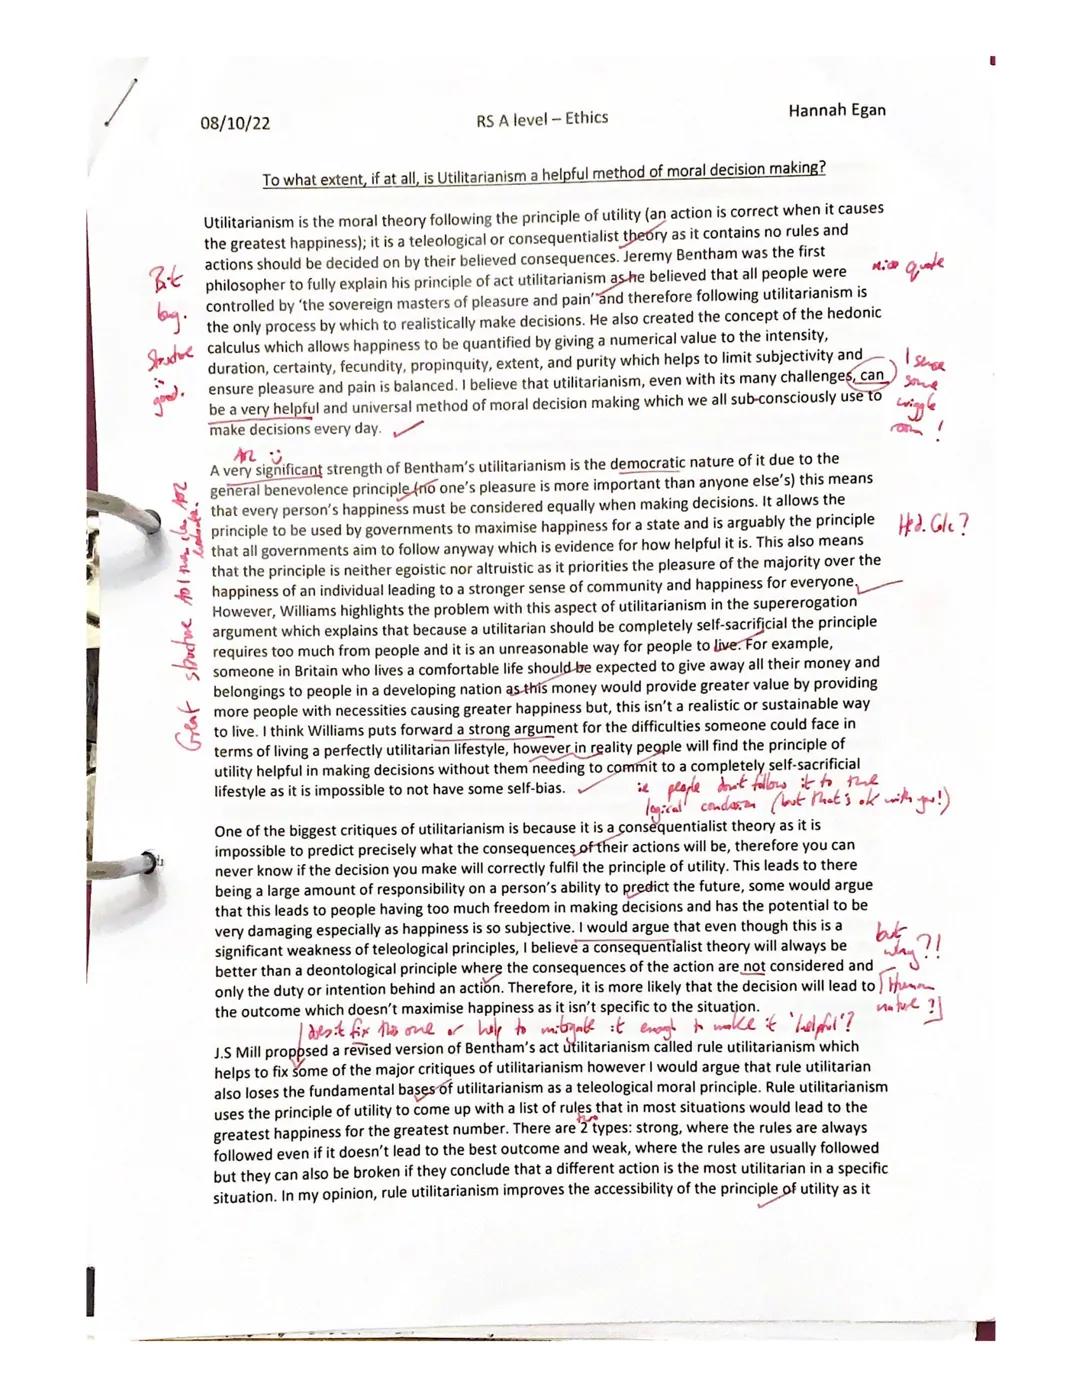 08/10/22
RS A level – Ethics
Hannah Egan
To what extent, if at all, is Utilitarianism a helpful method of moral decision making?
Utilitarianism is the moral theory following the principle of utility (an action is correct when it causes
the greatest happiness); it is a teleological or consequentialist theory as it contains no rules and
actions should be decided on by their believed consequences. Jeremy Bentham was the first
philosopher to fully explain his principle of act utilitarianism as he believed that all people were
controlled by 'the sovereign masters of pleasure and pain' and therefore following utilitarianism is
the only process by which to realistically make decisions. He also created the concept of the hedonic
calculus which allows happiness to be quantified by giving a numerical value to the intensity,
duration, certainty, fecundity, propinquity, extent, and purity which helps to limit subjectivity and
ensure pleasure and pain is balanced. I believe that utilitarianism, even with its many challenges, can
be a very helpful and universal method of moral decision making which we all sub-consciously use to
make decisions every day.
Bit
long.
Structure
good.
nice quote
I sense
some
wiggle
room!
AO2
A very significant strength of Bentham's utilitarianism is the democratic nature of it due to the
general benevolence principle (no one's pleasure is more important than anyone else's) this means
that every person's happiness must be considered equally when making decisions. It allows the
principle to be used by governments to maximise happiness for a state and is arguably the principle
that all governments aim to follow anyway which is evidence for how helpful it is. This also means
that the principle is neither egoistic nor altruistic as it priorities the pleasure of the majority over the
happiness of an individual leading to a stronger sense of community and happiness for everyone.
However, Williams highlights the problem with this aspect of utilitarianism in the supererogation
argument which explains that because a utilitarian should be completely self-sacrificial the principle
requires too much from people and it is an unreasonable way for people to live. For example,
someone in Britain who lives a comfortable life should be expected to give away all their money and
belongings to people in a developing nation as this money would provide greater value by providing
more people with necessities causing greater happiness but, this isn't a realistic or sustainable way
to live. I think Williams puts forward a strong argument for the difficulties someone could face in
terms of living a perfectly utilitarian lifestyle, however in reality people will find the principle of
utility helpful in making decisions without them needing to commit to a completely self-sacrificial
lifestyle as it is impossible to not have some self-bias.
Hed. Calc?
Great structure AO1 AO2
ie people don't follow it to the
logical conclusion (but that's ok with you!)
One of the biggest critiques of utilitarianism is because it is a consequentialist theory as it is
impossible to predict precisely what the consequences of their actions will be, therefore you can
never know if the decision you make will correctly fulfil the principle of utility. This leads to there
being a large amount of responsibility on a person's ability to predict the future, some would argue
that this leads to people having too much freedom in making decisions and has the potential to be
very damaging especially as happiness is so subjective. I would argue that even though this is a
significant weakness of teleological principles, I believe a consequentialist theory will always be
better than a deontological principle where the consequences of the action are not considered and
only the duty or intention behind an action. Therefore, it is more likely that the decision will lead to
the outcome which doesn't maximise happiness as it isn't specific to the situation.
but
why?!
[Human
nature?]
does it fix this one or help to mitigate it enough to make it 'helpful'?
J.S Mill proposed a revised version of Bentham's act utilitarianism called rule utilitarianism which
helps to fix some of the major critiques of utilitarianism however I would argue that rule utilitarian
also loses the fundamental bases of utilitarianism as a teleological moral principle. Rule utilitarianism
uses the principle of utility to come up with a list of rules that in most situations would lead to the
two
greatest happiness for the greatest number. There are 2 types: strong, where the rules are always
followed even if it doesn't lead to the best outcome and weak, where the rules are usually followed
but they can also be broken if they conclude that a different action is the most utilitarian in a specific
situation. In my opinion, rule utilitarianism improves the accessibility of the principle of utility as it